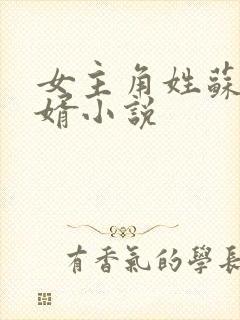 女主角姓蘇
婿小說
有香氣的學長